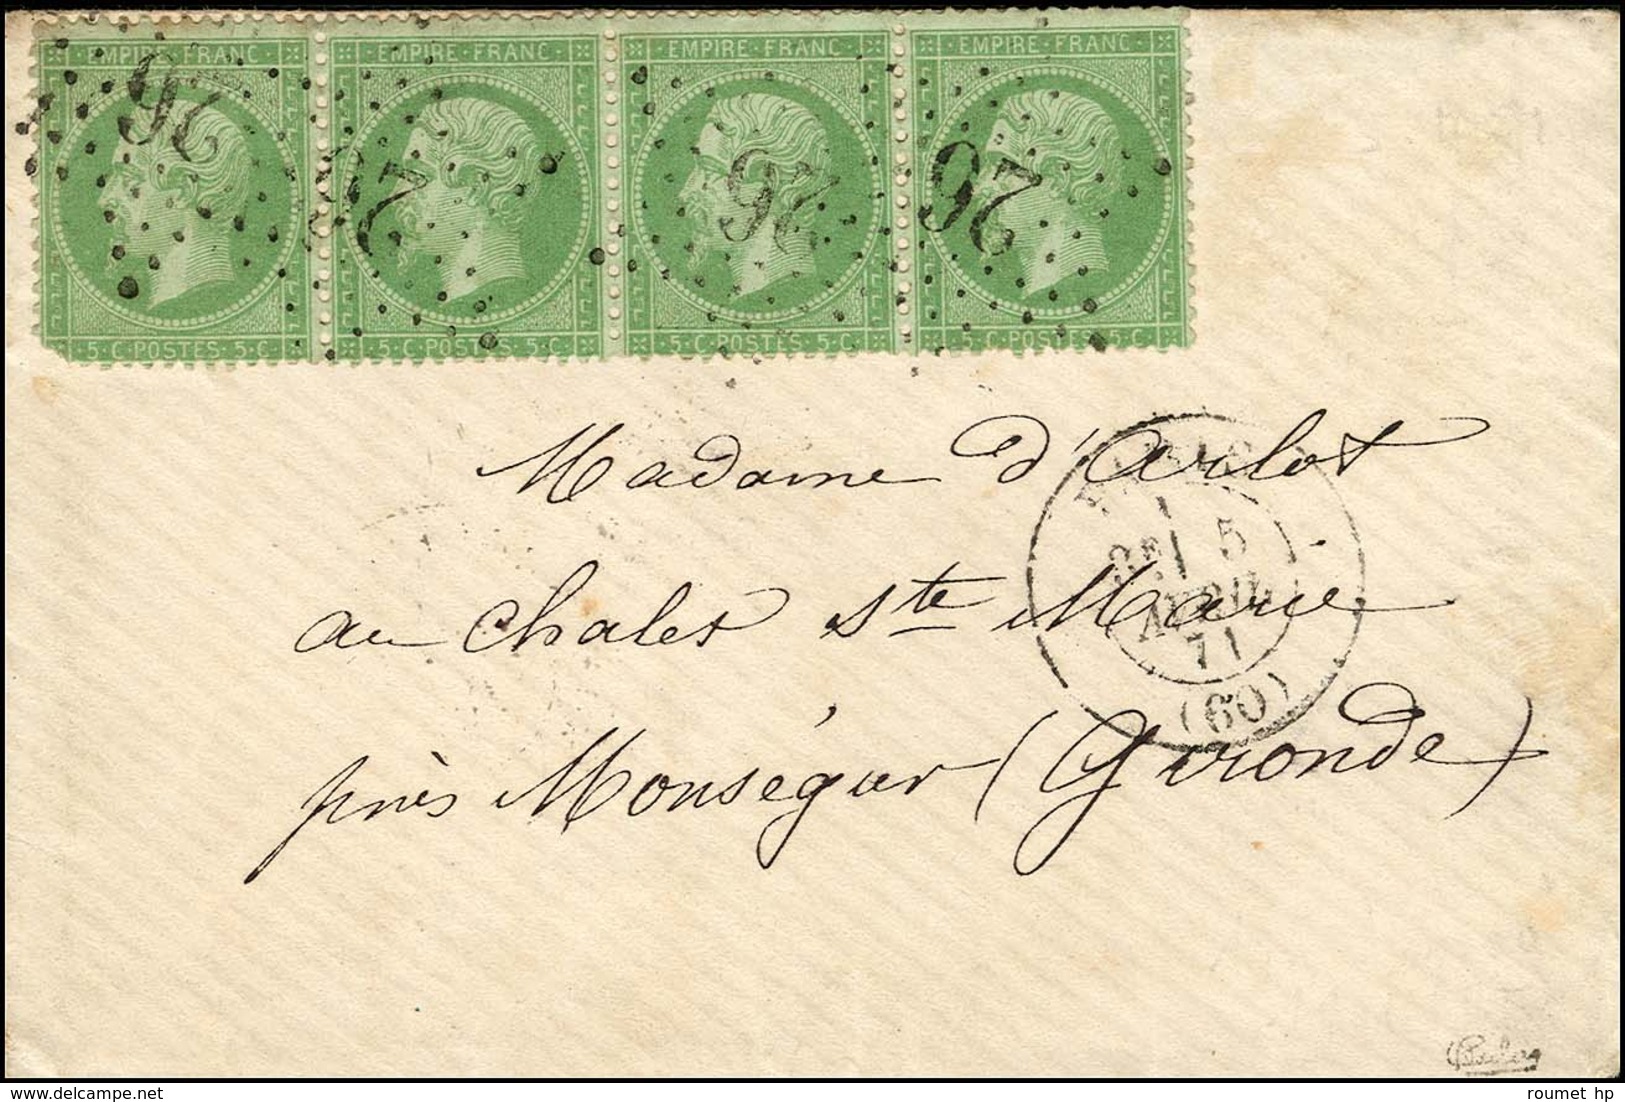 EMPIRE · FRANC EMPIRE · FRANC EMPIRE · FRANC EMPIRE · FRANC
26 26 26 26
5 · C · POSTES · 5 · C 5 · C · POSTES · 5 · C 5 · C · POSTES · 5 · C 5 · C · POSTES · 5 · C
Madame d'Arlot
au chalet Ste Marie
près Monségur (Gironde)
PARIS
5
AVRIL
71
(60)
roumet hp